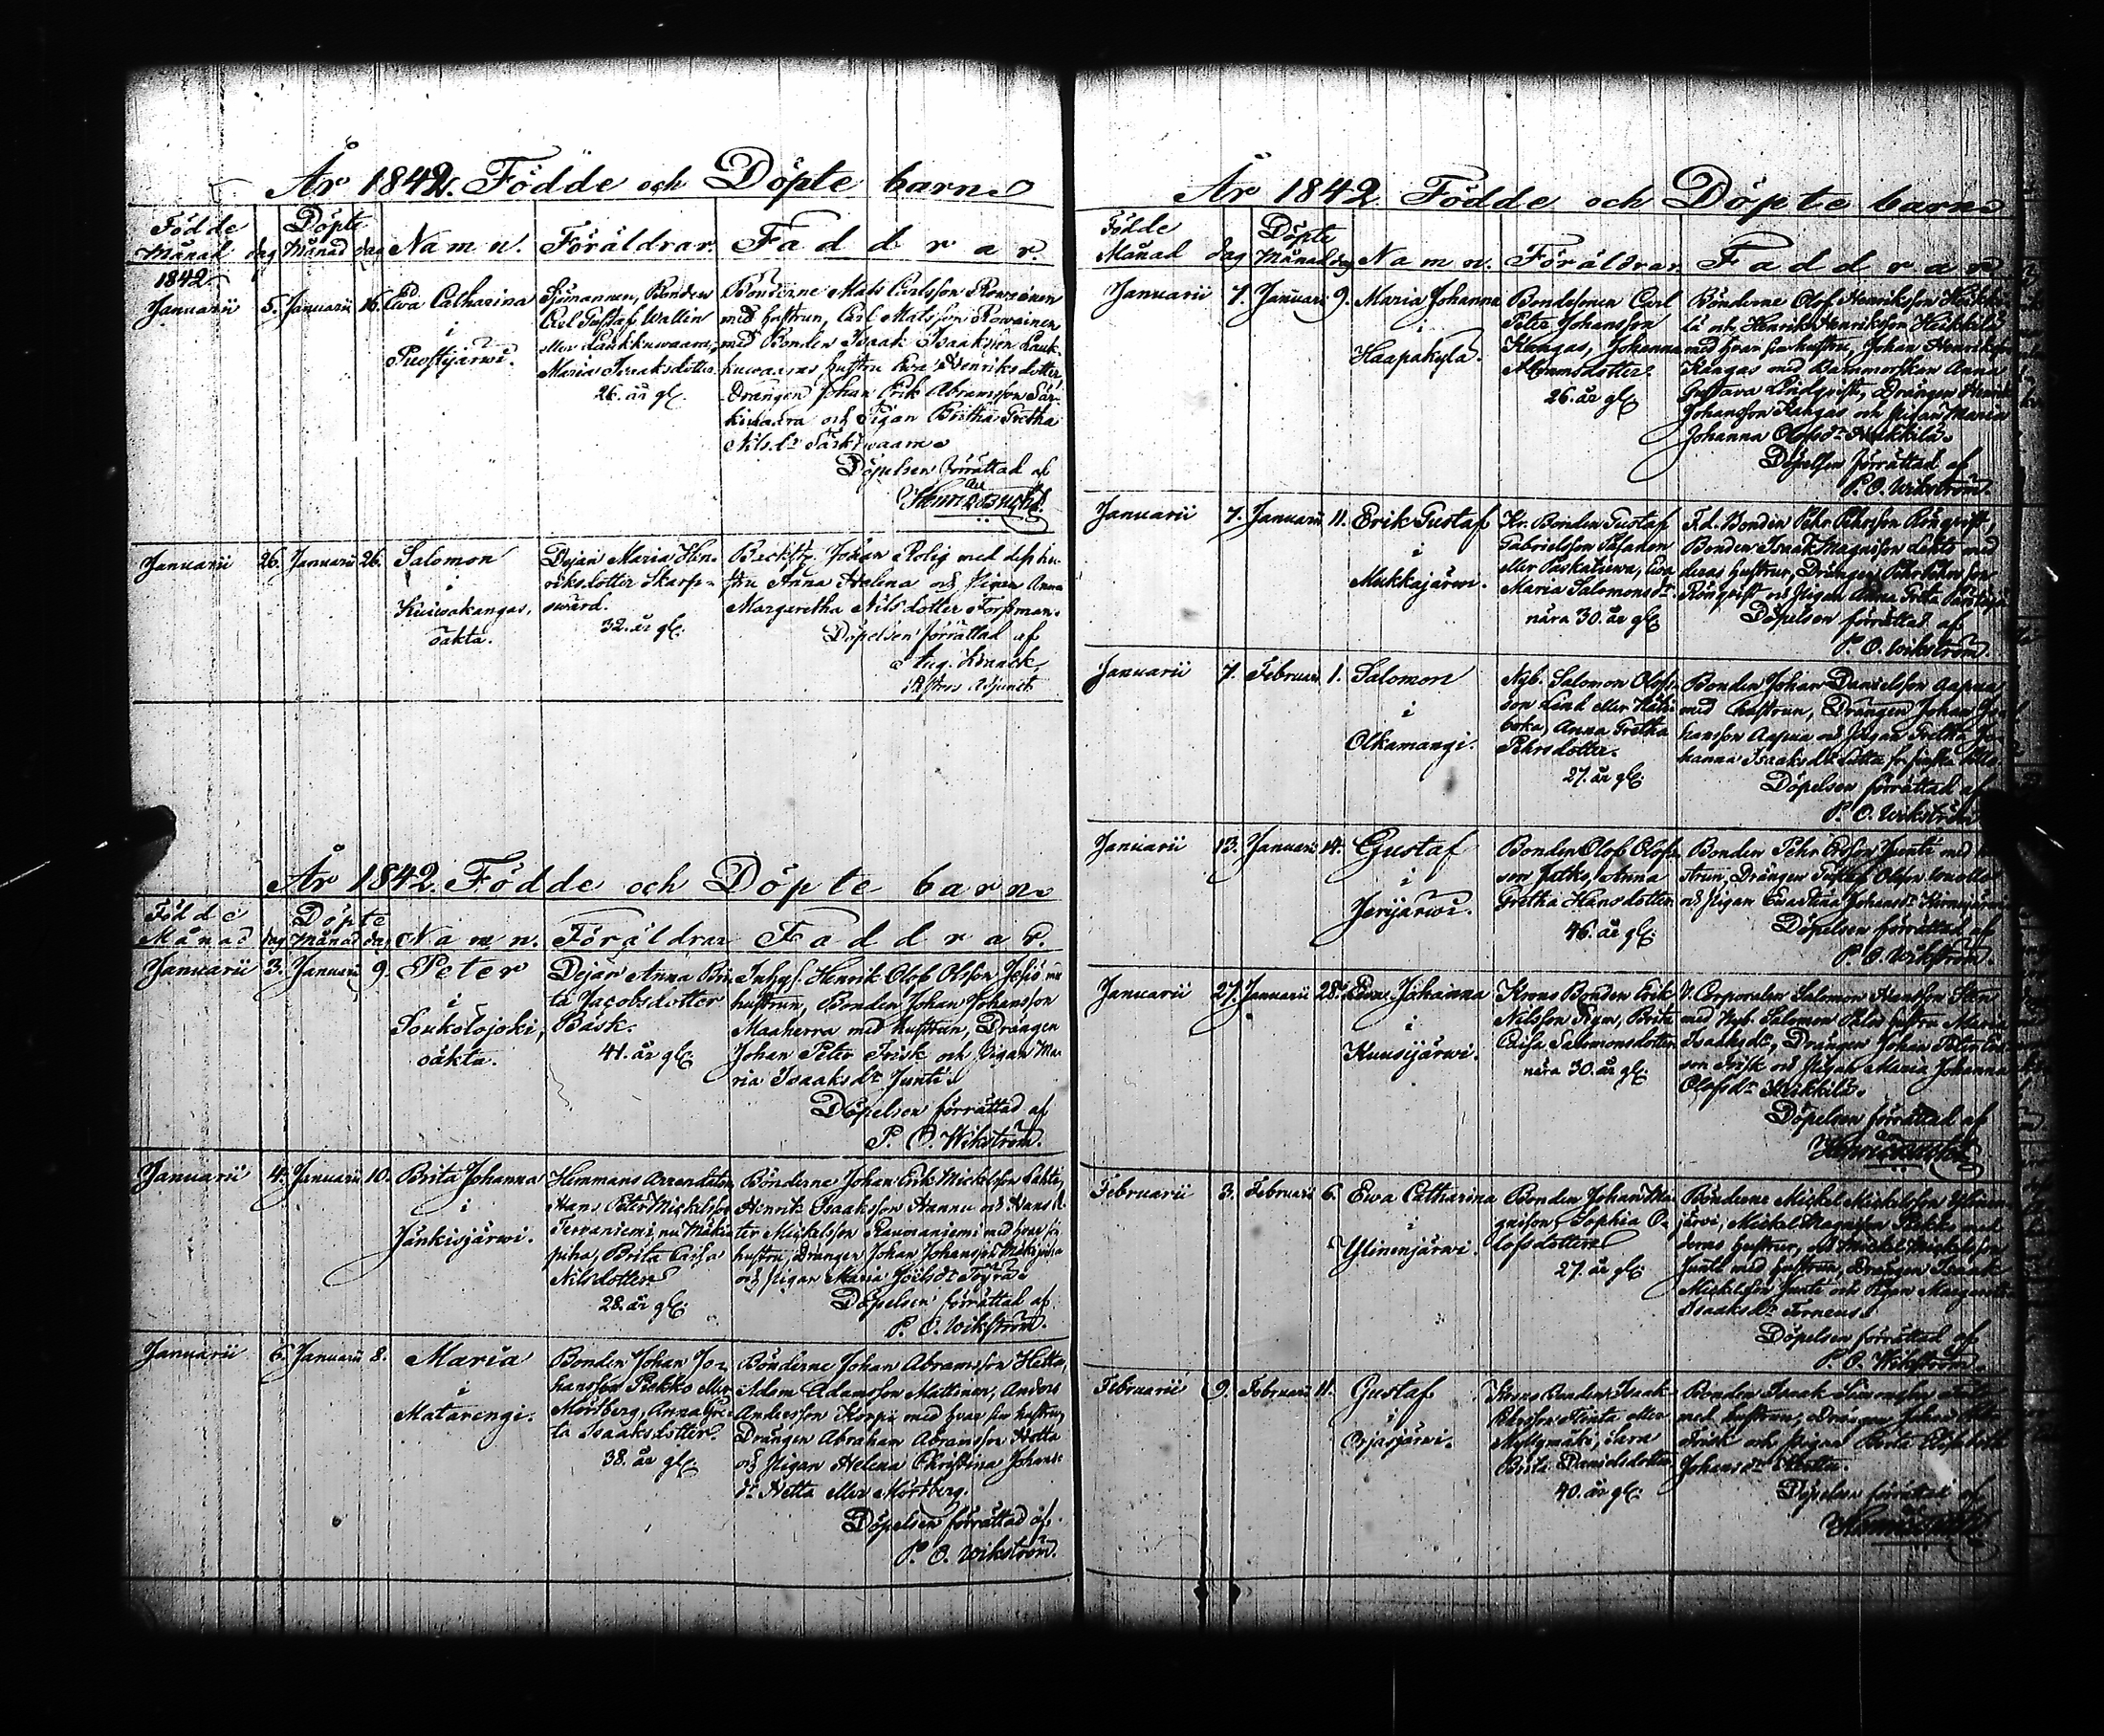 År 1842. Födde och Döpte barn
Födde Döpte
Månad dag Månad dag Namn. Föräldrar. Faddrar.
1842.
Januarii 5. Januarii 16. Ewa Catharina
i
Puostijärwi.
Sjömannen, Bonden
Carl Gustaf Wallin
eller Laukkuwaara,
Maria Isaksdotter.
26. år gl.
Bönderne Mats Carlsson Rowainen
med hustrun, Carl Matsson Rowainen
med Bonden Isaak Isaaksson Lauk-
kuwaaras hustru Ewa Henriksdotter
Drängen Johan Erik Abramsson Sär-
kiwaara och Pigan Britha Gretha
Nilsdr Särkiwaara
Döpelsen förrättad af
Januarii 26. Januarii 26. Salomon
i
Kuiwakangas,
oäkta.
Dejan Maria Hen-
riksdotter Skarp-
swärd.
32. år gl.
Johan Rolig med dess hu-
stru Anna Helena och Pigan Anna
Margaretha Nilsdotter Forssman.
Döpelsen förrättad af
Aug.
Adjunct
År 1842. Födde och Döpte barn
Födde Döpte
Månad dag Månad dag Namn. Föräldrar Faddrar.
Januarii 3. Januarii 9. Peter
i
Soukolojoki,
oäkta.
Dejan Anna Bri-
ta Jacobsdotter
Bäck.
41. år gl.
Henrik Olof Olsson
hustrun, Bonden Johan Johansson
Maaherra med hustrun, Drängen
Johan Peter Frisk och Pigan Ma-
ria Isaaksdr Junti.
Döpelsen förrättad af
P. O. Wikström.
Januarii 4. Januarii 10. Brita Johanna
i
Jänkisjärwi.
Hemmans Arrendatorn
Hans Peter Mickelsson
Terwaniemi, nu Mäkin-
piha, Brita Caisa
Nilsdotter
28. år gl.
Bönderne Johan Erik Mickelsson Lahti,
Henrik Isaaksson Hannu och Hans Pe-
ter Mickelsson Rauwaniemi med hvar sin
hustru, Drängen Johan Johansson
och Pigan Maria Joelsdr Töyrä.
Döpelsen förrättad af
P. O. Wikström.
Januarii 6. Januarii 8. Maria
i
Matarengi.
Bonden Johan Jo-
hansson Piekko eller
Mörtberg, Anna Gre-
ta Isaaksdotter.
38. år gl.
Bönderne Johan Abramsson Hetta,
Adam Adamsson Mattinen, Anders
Andersson Korpi med hvar sin hustru,
Drängen Abraham Abramsson Hetta
och Pigan Helena Christina Johans-
dr Hetta eller Mörtberg.
Döpelsen förrättad af
P. O. Wikström.
År 1842. Födde och Döpte barn
Födde Döpte
Månad dag Månad dag Namn. Föräldrar. Faddrar
Januarii 7. Januarii 9. Maria Johanna
i
Haapakylä.
Bondesonen Carl
Peter Johansson
Kangas, Johanna
26. år gl.
Bönderne Olof Henriksson Heikki-
lä och Henrik Henriksson Heikkilä
med hvar sin hustru, Johan Henriksson
Kangas med Barnmorskan Anna
Gustava Lindqvist, Drängen Henrik
Johansson Kangas och Pigan Maria
Johanna Olofsdr Heikkilä.
Döpelsen förrättad af
P. O. Wikström.
Januarii 7. Januarii 11. Erik Gustaf
i
Mukkajärwi.
Kr. Bonden Gustaf
Gabrielsson
eller Ewa
Maria Salomonsdr
nära 30. år gl.
F.d. Bonden Pehr Pehrsson Rönqvist,
Bonden Isaak Magnisson Lahti med
deras hustrur, Drängen Pehr Pehrsson
Rönqvist och Pigan Anna Greta
Döpelsen förrättad af
P. O. Wikström.
Januarii 7. Februarii 1. Salomon
i
Olkamangi.
Nyb. Salomon Olofs-
son Lind eller
Anna Gretha
Pehrsdotter.
27. år gl.
Bonden Johan Danielsson Aapua
med hustrun, Drängen Johan Jo-
hansson Aapua och Pigan Gretha Jo-
hanna Isaaksdr
Döpelsen förrättad af
P. O. Wikström
Januarii 13. Januarii 14. Gustaf
i
Jerijärwi.
Bonden Olof Olofs-
son Anna
Gretha Hansdotter
46. år gl.
Bonden Pehr Junti med
strun, Drängen Gustaf Olsson
och Pigan Ewa Stina Johansdr
Döpelsen förrättad af
P. O. Wikström.
Januarii 27. Januarii 28. Ewa Johanna
i
Kuusijärwi.
Krono Bonden Erik
Nilsson Brita
Caisa Salomonsdotter
nära 30. år gl.
V. Corporalen Salomon Hansson Sten
med Nyb. Salomon hustru Maria
Isaaksdr, Drängen Johan Peter
son Frisk och Pigan Maria Johanna
Olofsdr Heikkilä.
Döpelsen förrättad af
Februarii 3. Februarii 6. Ewa Catharina
i
Ylinenjärwi.
Bonden Johan Ma-
gnisson, Sophia O-
lofsdotter
27. år gl.
Bönderne Mickel Mickelsson Ylinen-
järwi, Mickel Magnisson med
deras hustrur, Mickel Mickelsson
Junti med hustrun, Drängen Isaak
Mickelsson Junti och Pigan Margareta
Isaaksdr Torneus.
Döpelsen förrättad af
P. O. Wikström.
Februarii 9. Februarii 11. Gustaf
i
Krono Bonden Isaak
Pehrsson eller
Myllymäki, Sara
Brita Danielsdotter
40. år gl.
Bonden Isaak Simonsson
med hustrun, Drängen Johan
Frisk och Pigan Brita Elisabeth
Johansdr
Döpelsen förrättad af